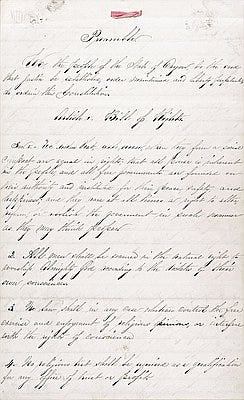 Preamble
We the people of the State of Oregon to the end
that justice be established, order maintained and liberty perpetuated
do ordain this Constitution
Article 1. Bill of Rights
Sec 1. We declare that all men, when they form a social
compact are equal in rights, that all power is inherent
in the people, and all free governments are founded on
their authority and instituted for their peace, safety and
happiness, and they have at all times a right to alter
reform, or abolish the government in such manner
as they may think proper
2. All men shall be secured in the natural right to
worship Almighty God according to the dictates of their
own consciences
3. No law shall in any case whatever control the free
exercise and enjoyment of religious opinions, or interfere
with the rights of conscience
4. No religious test shall be required as a qualification
for any office of trust or profit